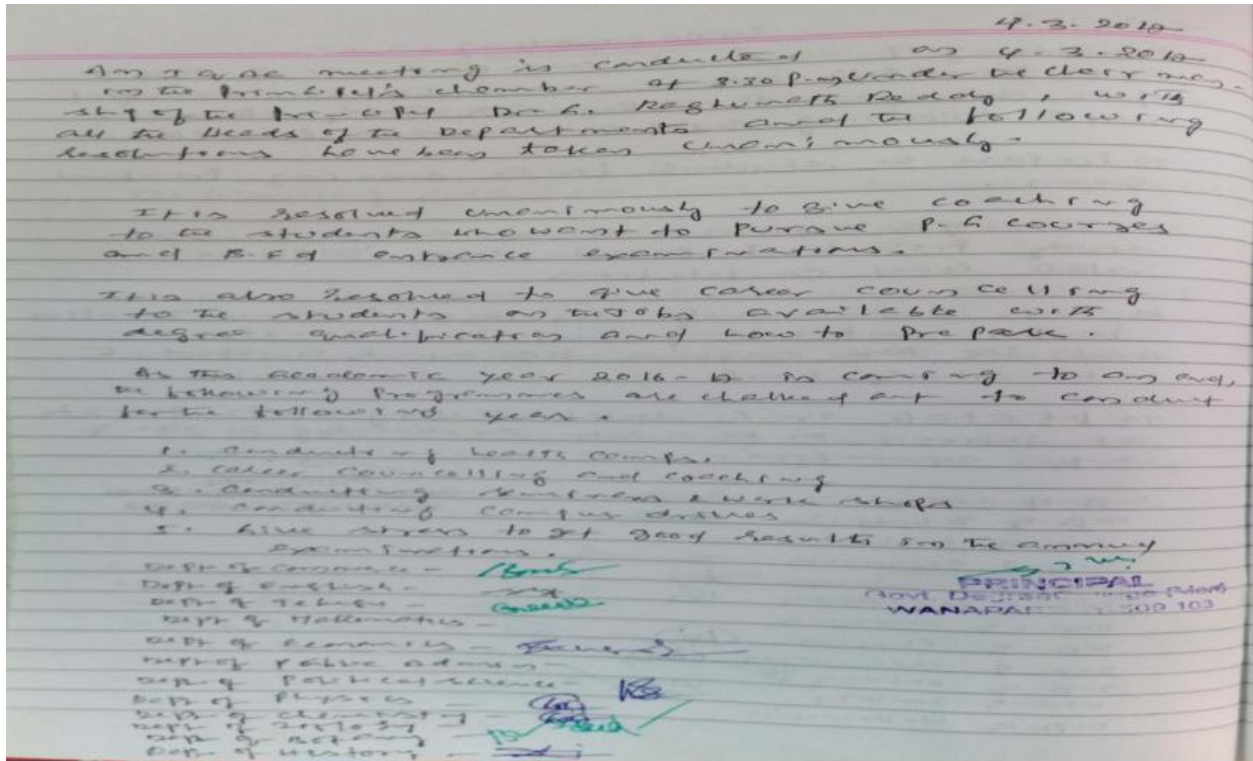 4.3.2017
An IQAC meeting is conducted on 4.3.2017
in the Principal's chamber at 3.30 P.m under the chairman-
ship of the Principal Dr. G. Raghunath Reddy, with
all the Heads of the Departments and the following
resolutions have been taken unanimously.
It is resolved unanimously to give coaching
to the students who want to pursue P.G courses
and B.Ed entrance examinations.
It is also resolved to give career councelling
to the students on the jobs available with
degree qualification and how to prepare.
As the academic year 2016-17 is coming to an end,
the following programmes are chalked out to conduct
for the following year.
1. Conducting health camps.
2. Career councelling and coaching
3. Conducting seminars & work shops
4. Conducting campus drives
5. Give stress to get good results in the annual
examinations.
Dept of Commerce -
Dept of English -
Dept of Telugu -
Dept of Mathematics -
Dept of Economics -
Dept of Public Admin -
Dept of Political Science -
Dept of Physics -
Dept of Chemistry -
Dept of Zoology -
Dept of Botany -
Dept of History -
PRINCIPAL
Govt. Degree (Men)
WANAPAR 509 103